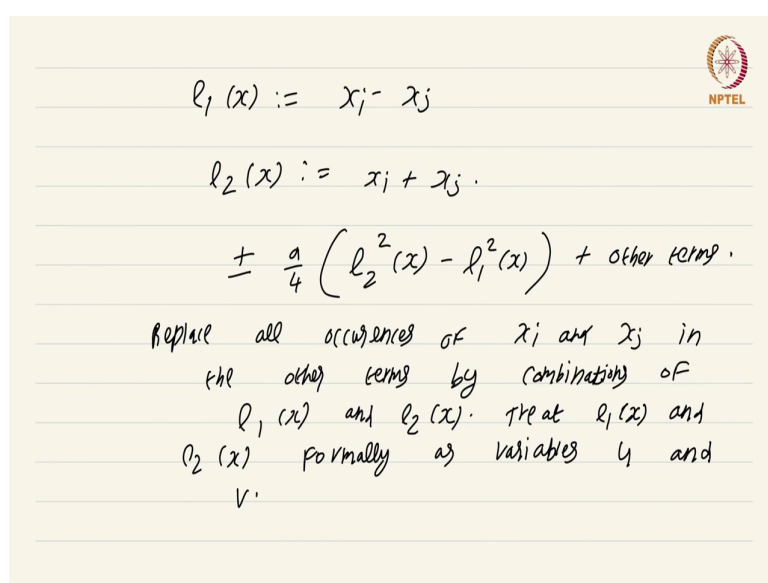 NPTEL
l₁(x) := xᵢ - xⱼ
l₂(x) := xᵢ + xⱼ.
± a/4 (l₂²(x) - l₁²(x)) + other terms.
Replace all occurences of xᵢ and xⱼ in
the other terms by combinations of
l₁(x) and l₂(x). Treat l₁(x) and
l₂(x) formally as variables u and
v.